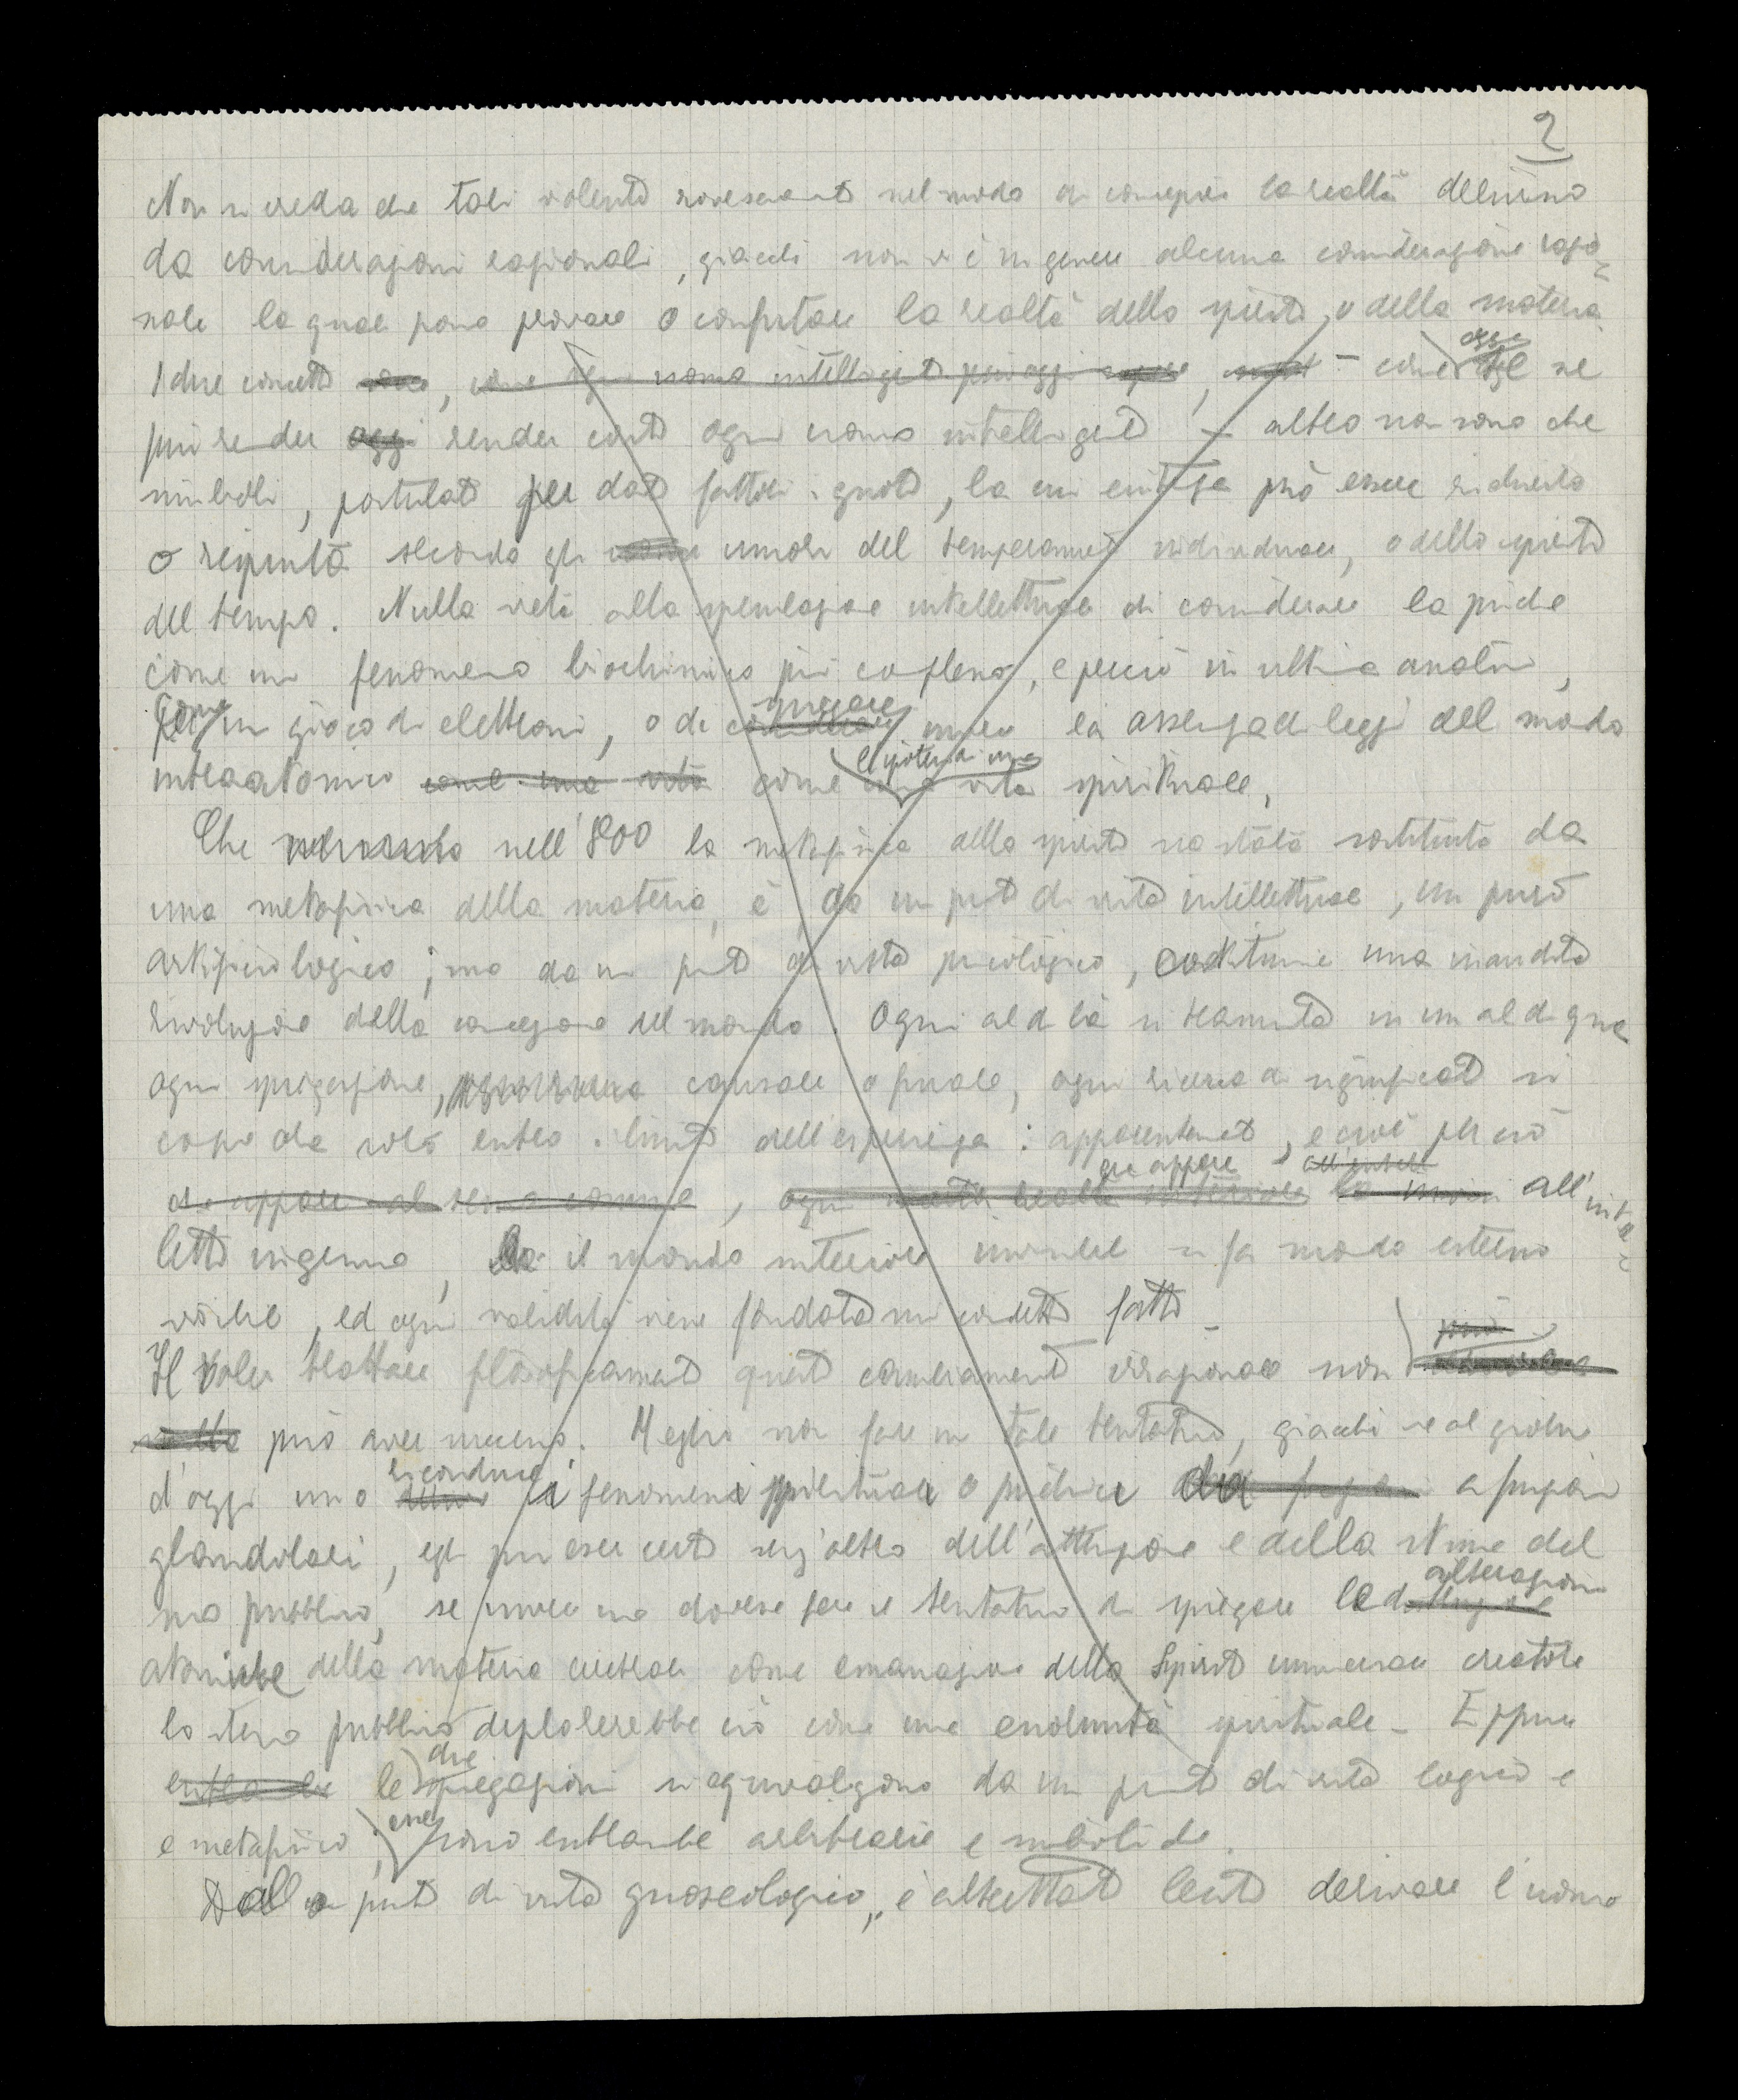 2
Non si creda che tali violenti rovesciamenti nel modo di concepire la realtà derivino
da considerazioni razionali, giacché non vi è in genere alcuna considerazione razio=
nale la quale possa provare o confutare la realtà dello spirito, o della materia.
I due concetti, come ogni uomo intelligente può oggi sapere, – come oggi se ne
può render oggi render conto ogni uomo intelligente – altro non sono che
simboli, postulati per dati fattori ignoti, la cui esistenza può essere
o respinta secondo gli umori del temperamento individuale, o dello spirito
del tempo. Nulla vieta alla speculazione intellettuale di considerare la psiche
come un fenomeno biochimico più complesso, e perciò in ultima analisi,
come un gioco di elettroni, o di spiegare invece la assenza di leggi del mondo
intraatomico come una vita come l'ipotesi di una vita spirituale.
Che nell'800 la metafisica dello spirito sia stata sostituita da
una metafisica della materia, è da un punto di vista intellettuale, un puro
artificio logico; ma da un punto di vista psicologico, costituisce una inaudita
rivoluzione della concezione del mondo. Ogni al di là si tramuta in un al di qua
ogni spiegazione, causale o finale, ogni ricerca di significato si
compie solo entro i limiti dell'esperienza: apparentemente, e cioè per ciò
che appare al senso comune, ogni che appare all'intel=
letto ingenuo, il mondo interiore invisibile si fa mondo esterno
visibile, ed ogni validità viene fondata sui cosidetti fatti –
Il voler trattare filosoficamente questo cambiamento irrazionale non può
può aver successo. Meglio non fare un tale tentativo, giacché se al giorno
d'oggi uno riconduce i fenomeni spirituali o psichici a funzioni
glandolari, egli può esser certo senz'altro dell'attenzione e della stima del
suo pubblico, se invece uno dovesse fare il tentativo di spiegare le alterazioni
atomiche della materia cerebrale come emanazione dello Spirito universale creatore
lo stesso pubblico deplorerebbe ciò come una enormità spirituale – Eppure
entrambe le due spiegazioni si equivalgono da un punto di vista logico e
e metafisico; esse sono entrambe arbitrarie e simboliche.
Dal punto di vista gnoseologico, è altrettanto lecito derivare l'uomo